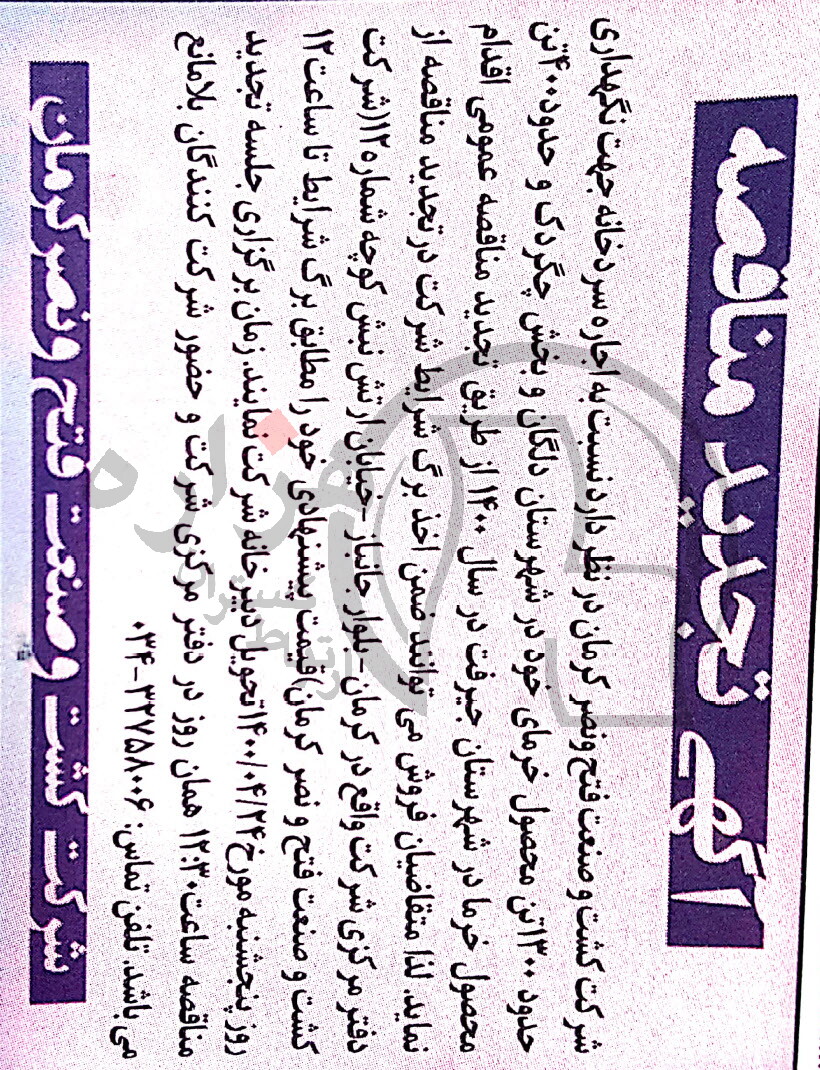 آگهی تجدید مناقصه
شرکت کشت و صنعت فتح ونصر کرمان در نظر دارد نسبت به اجاره سردخانه جهت نگهداری
حدود ۱۳۰۰تن محصول خرمای خود در شهرستان دلگان و بخش چگردک و حدود۴۰۰تن
محصول خرما در شهرستان جیرفت در سال ۱۴۰۰ از طریق تجدید مناقصه عمومی اقدام
نماید. لذا متقاضیان فروش می توانند ضمن اخذ برگ شرایط شرکت درتجدید مناقصه از
دفتر مرکزی شرکت واقع در کرمان- بلوار جانباز -خیابان ارتش نبش کوچه شماره۱۲(شرکت
کشت و صنعت فتح و نصر کرمان)قیمت پیشنهادی خود را مطابق برگ شرایط تا ساعت۱۲
روز پنجشنبه مورخ۱۴۰۰/۰۴/۲۴تحویل دبیرخانه شرکت نمایند. زمان برگزاری جلسه تجدید
مناقصه ساعت۱۲:۳۰ همان روز در دفتر مرکزی شرکت و حضور شرکت کنندگان بلامانع
می باشد. تلفن تماس: ۳۲۷۵۸۰۰۶-۰۳۴
شرکت کشت وصنعت فتح ونصرکرمان